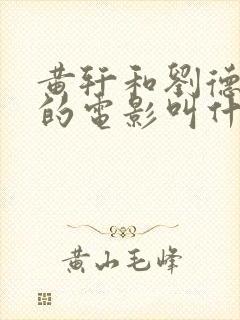 黄轩和劉德
的電影叫什
黄山毛峰